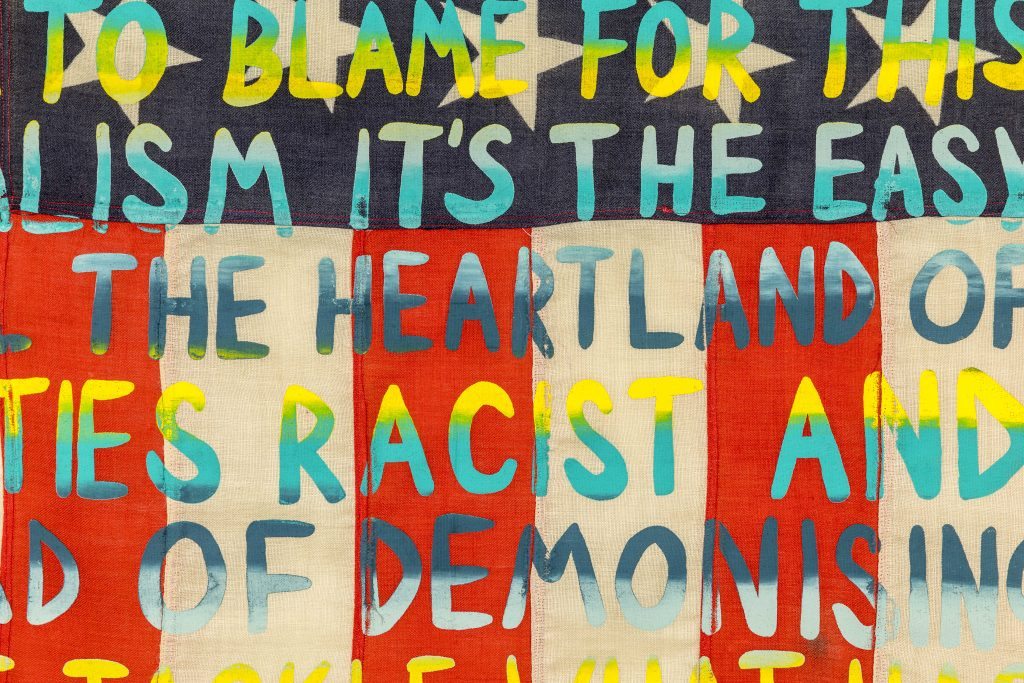 TO BLAME FOR THIS
LISM IT'S THE EASY
THE HEARTLAND OF
TIES RACIST AND
D OF DEMONISING
TACKLE WHAT